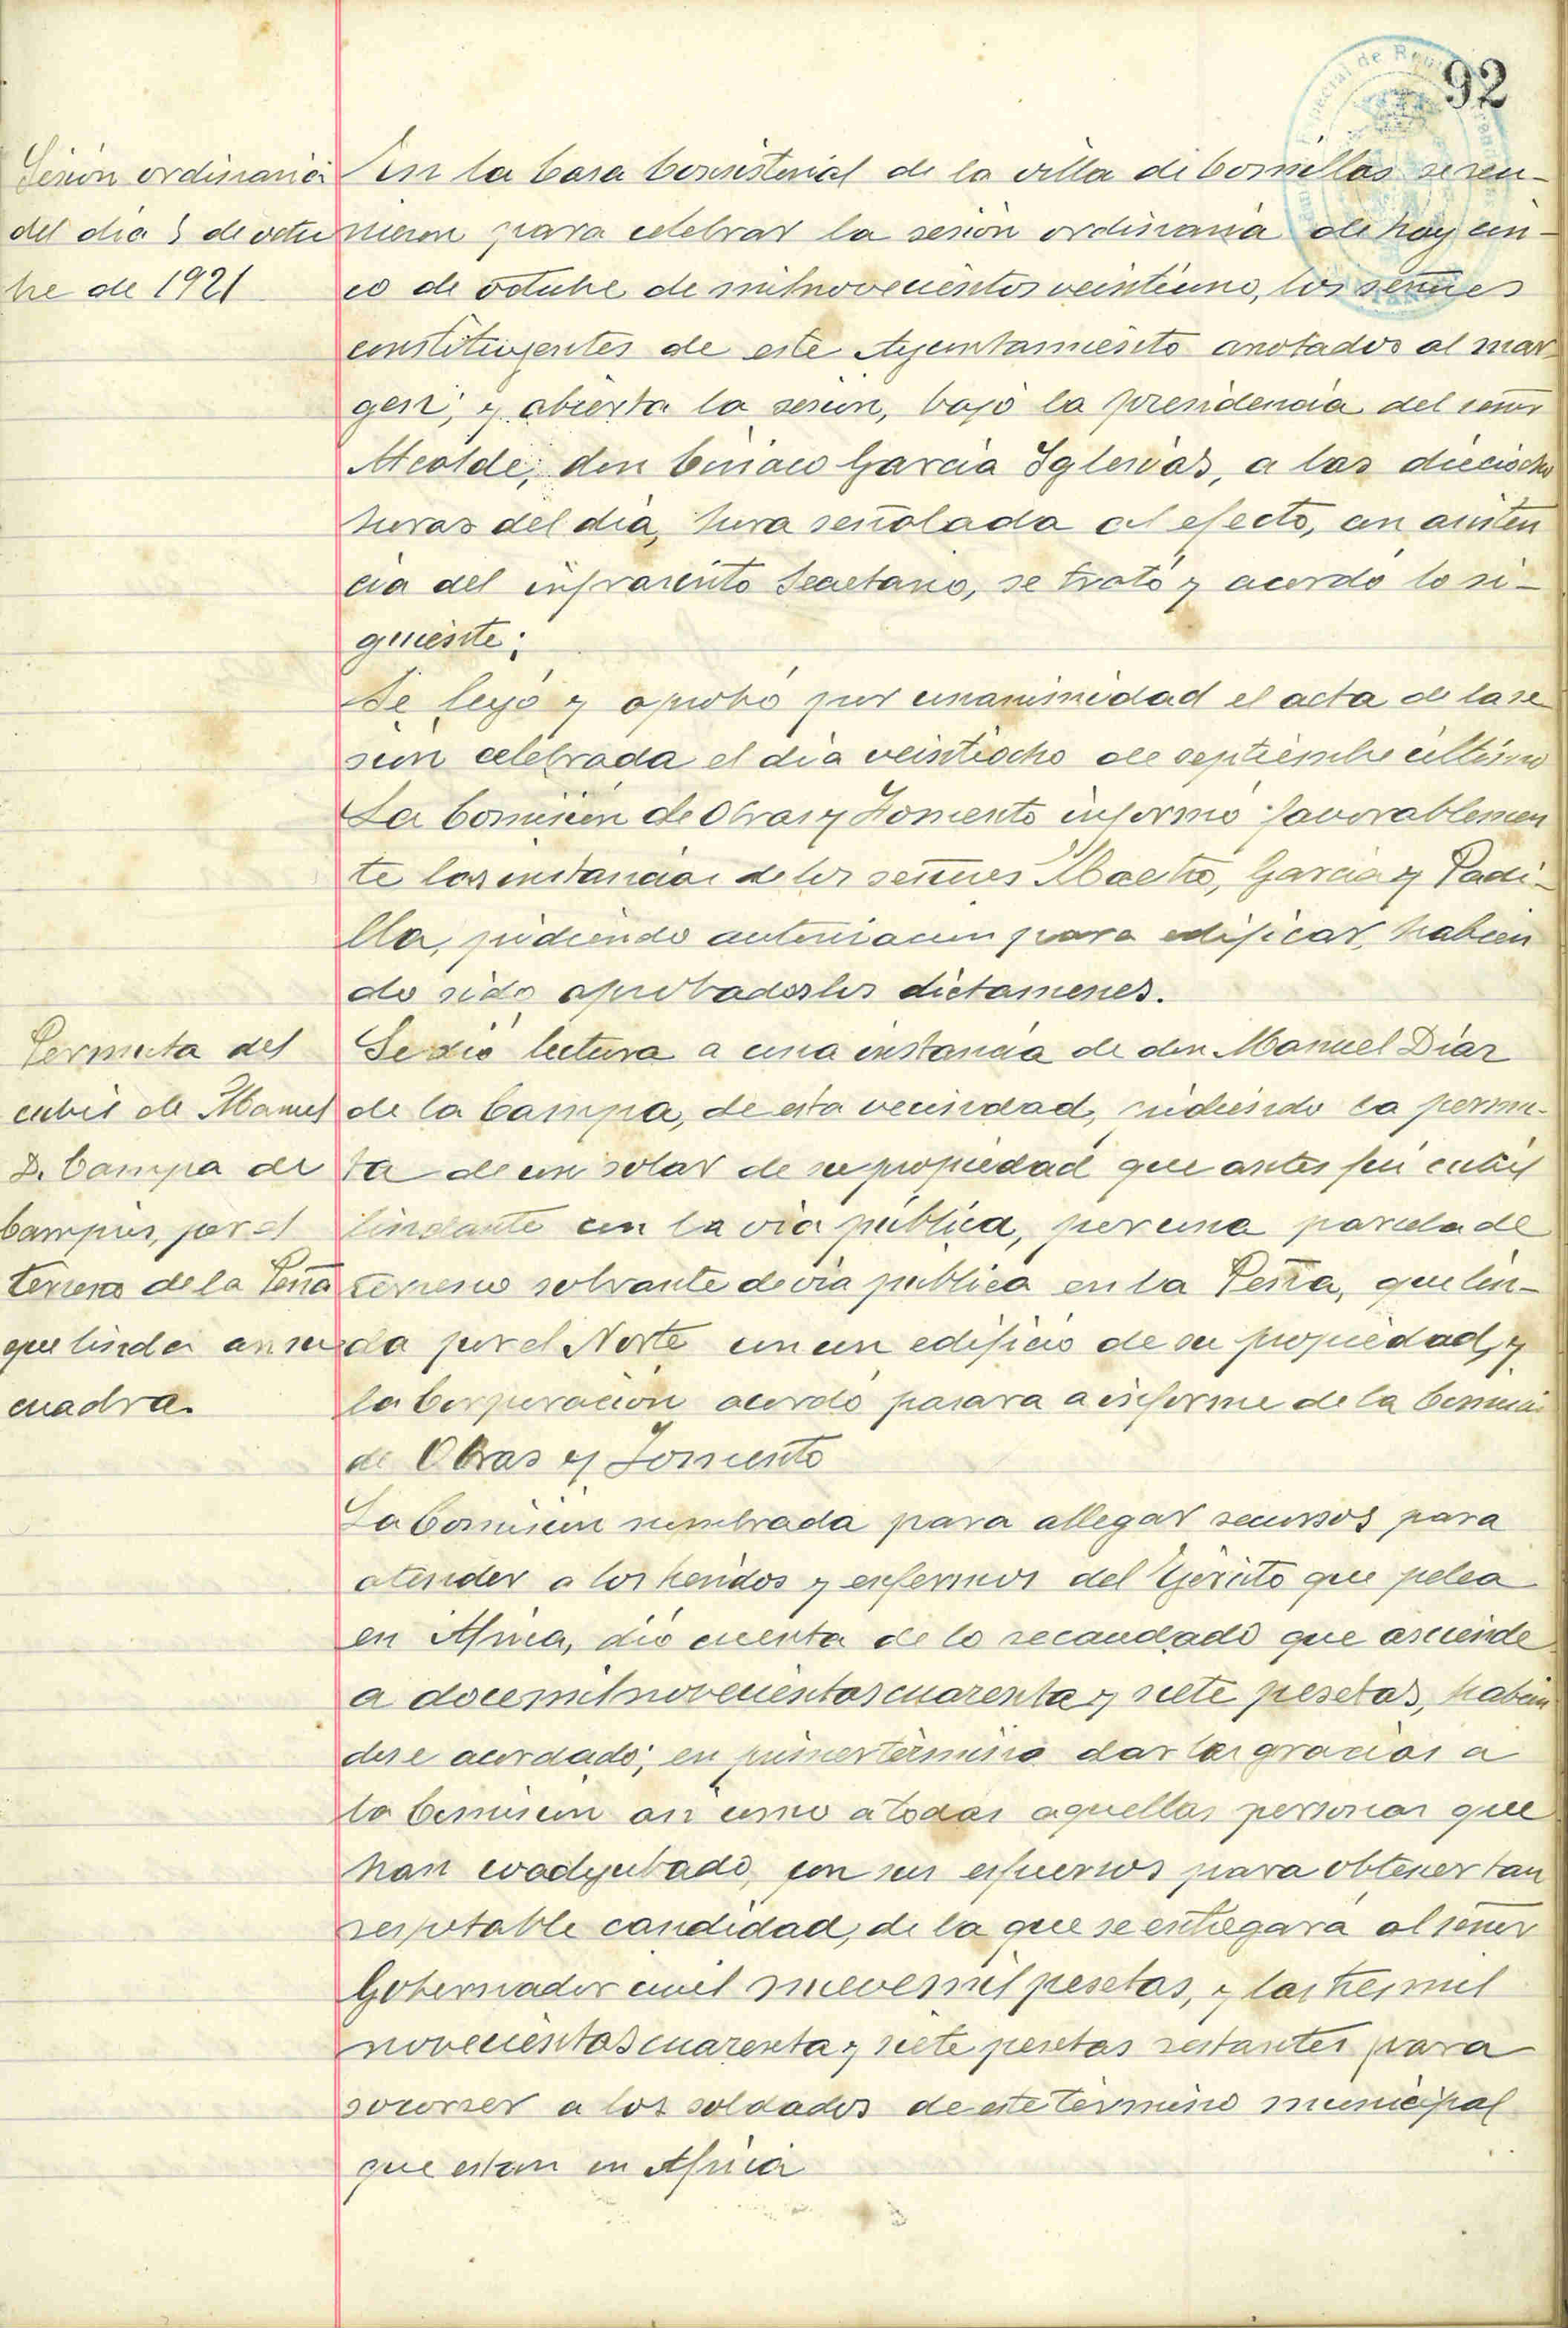 92
Sesión ordinaria
del dia 5 de octu
bre de 1921
En la Casa Consistorial de la villa de Comillas se reu-
nieron para celebrar la sesión ordinaria de hoy cin-
co de octubre de mil novecientos veintiuno, los señores
constituyentes de este Ayuntamiento anotados al mar
gen; y abierta la sesión, bajo la presidencia del señor
Alcalde, don Ciriaco Garcia Iglesias, a las dieciocho
horas del dia, hora señalada al efecto, con asisten
cia del infrascrito Secretario, se trató y acordó lo si-
guiente:
Se leyó y aprobó por unanimidad el acta de la se
sión celebrada el dia veintiocho de septiembre último
La Comisión de Obras y Fomento informó favorablemen
te las instancias de los señores Maestro, Garcia y Padi-
lla, pidiendo autorización para edificar, habien
do sido aprobados los dictamenes.
Permuta del
cubil de Manuel
D. Campa de
Campios, por el
terreno de la Peña
que linda con su
cuadra.
Se dió lectura a una instancia de don Manuel Díaz
de la Campa, de esta vecindad, pidiendo la permu-
ta de un solar de su propiedad que antes fué cubil
lindante con la via pública, por una parcela de
terreno sobrante de via publica en la Peña, que lin-
da por el Norte con un edificio de su propiedad, y
la Corporación acordó pasara a informe de la Comisión
de Obras y Fomento
La Comisión nombrada para allegar recursos para
atender a los heridos y enfermos del Ejército que pelea
en Africa, dió cuenta de lo recaudado que asciende
a doce mil novecientas cuarenta y siete pesetas, habien
dose acordado; en primer término dar las gracias a
la Comisión asi como a todas aquellas personas que
han coadyubado, con sus esfuerzos para obtener tan
respetable candidad, de la que se entregará al señor
Gobernador civil nueve mil pesetas, y las tres mil
novecientas cuarenta y siete pesetas restantes para
socorrer a los soldados de este término municipal
que estan en Africa